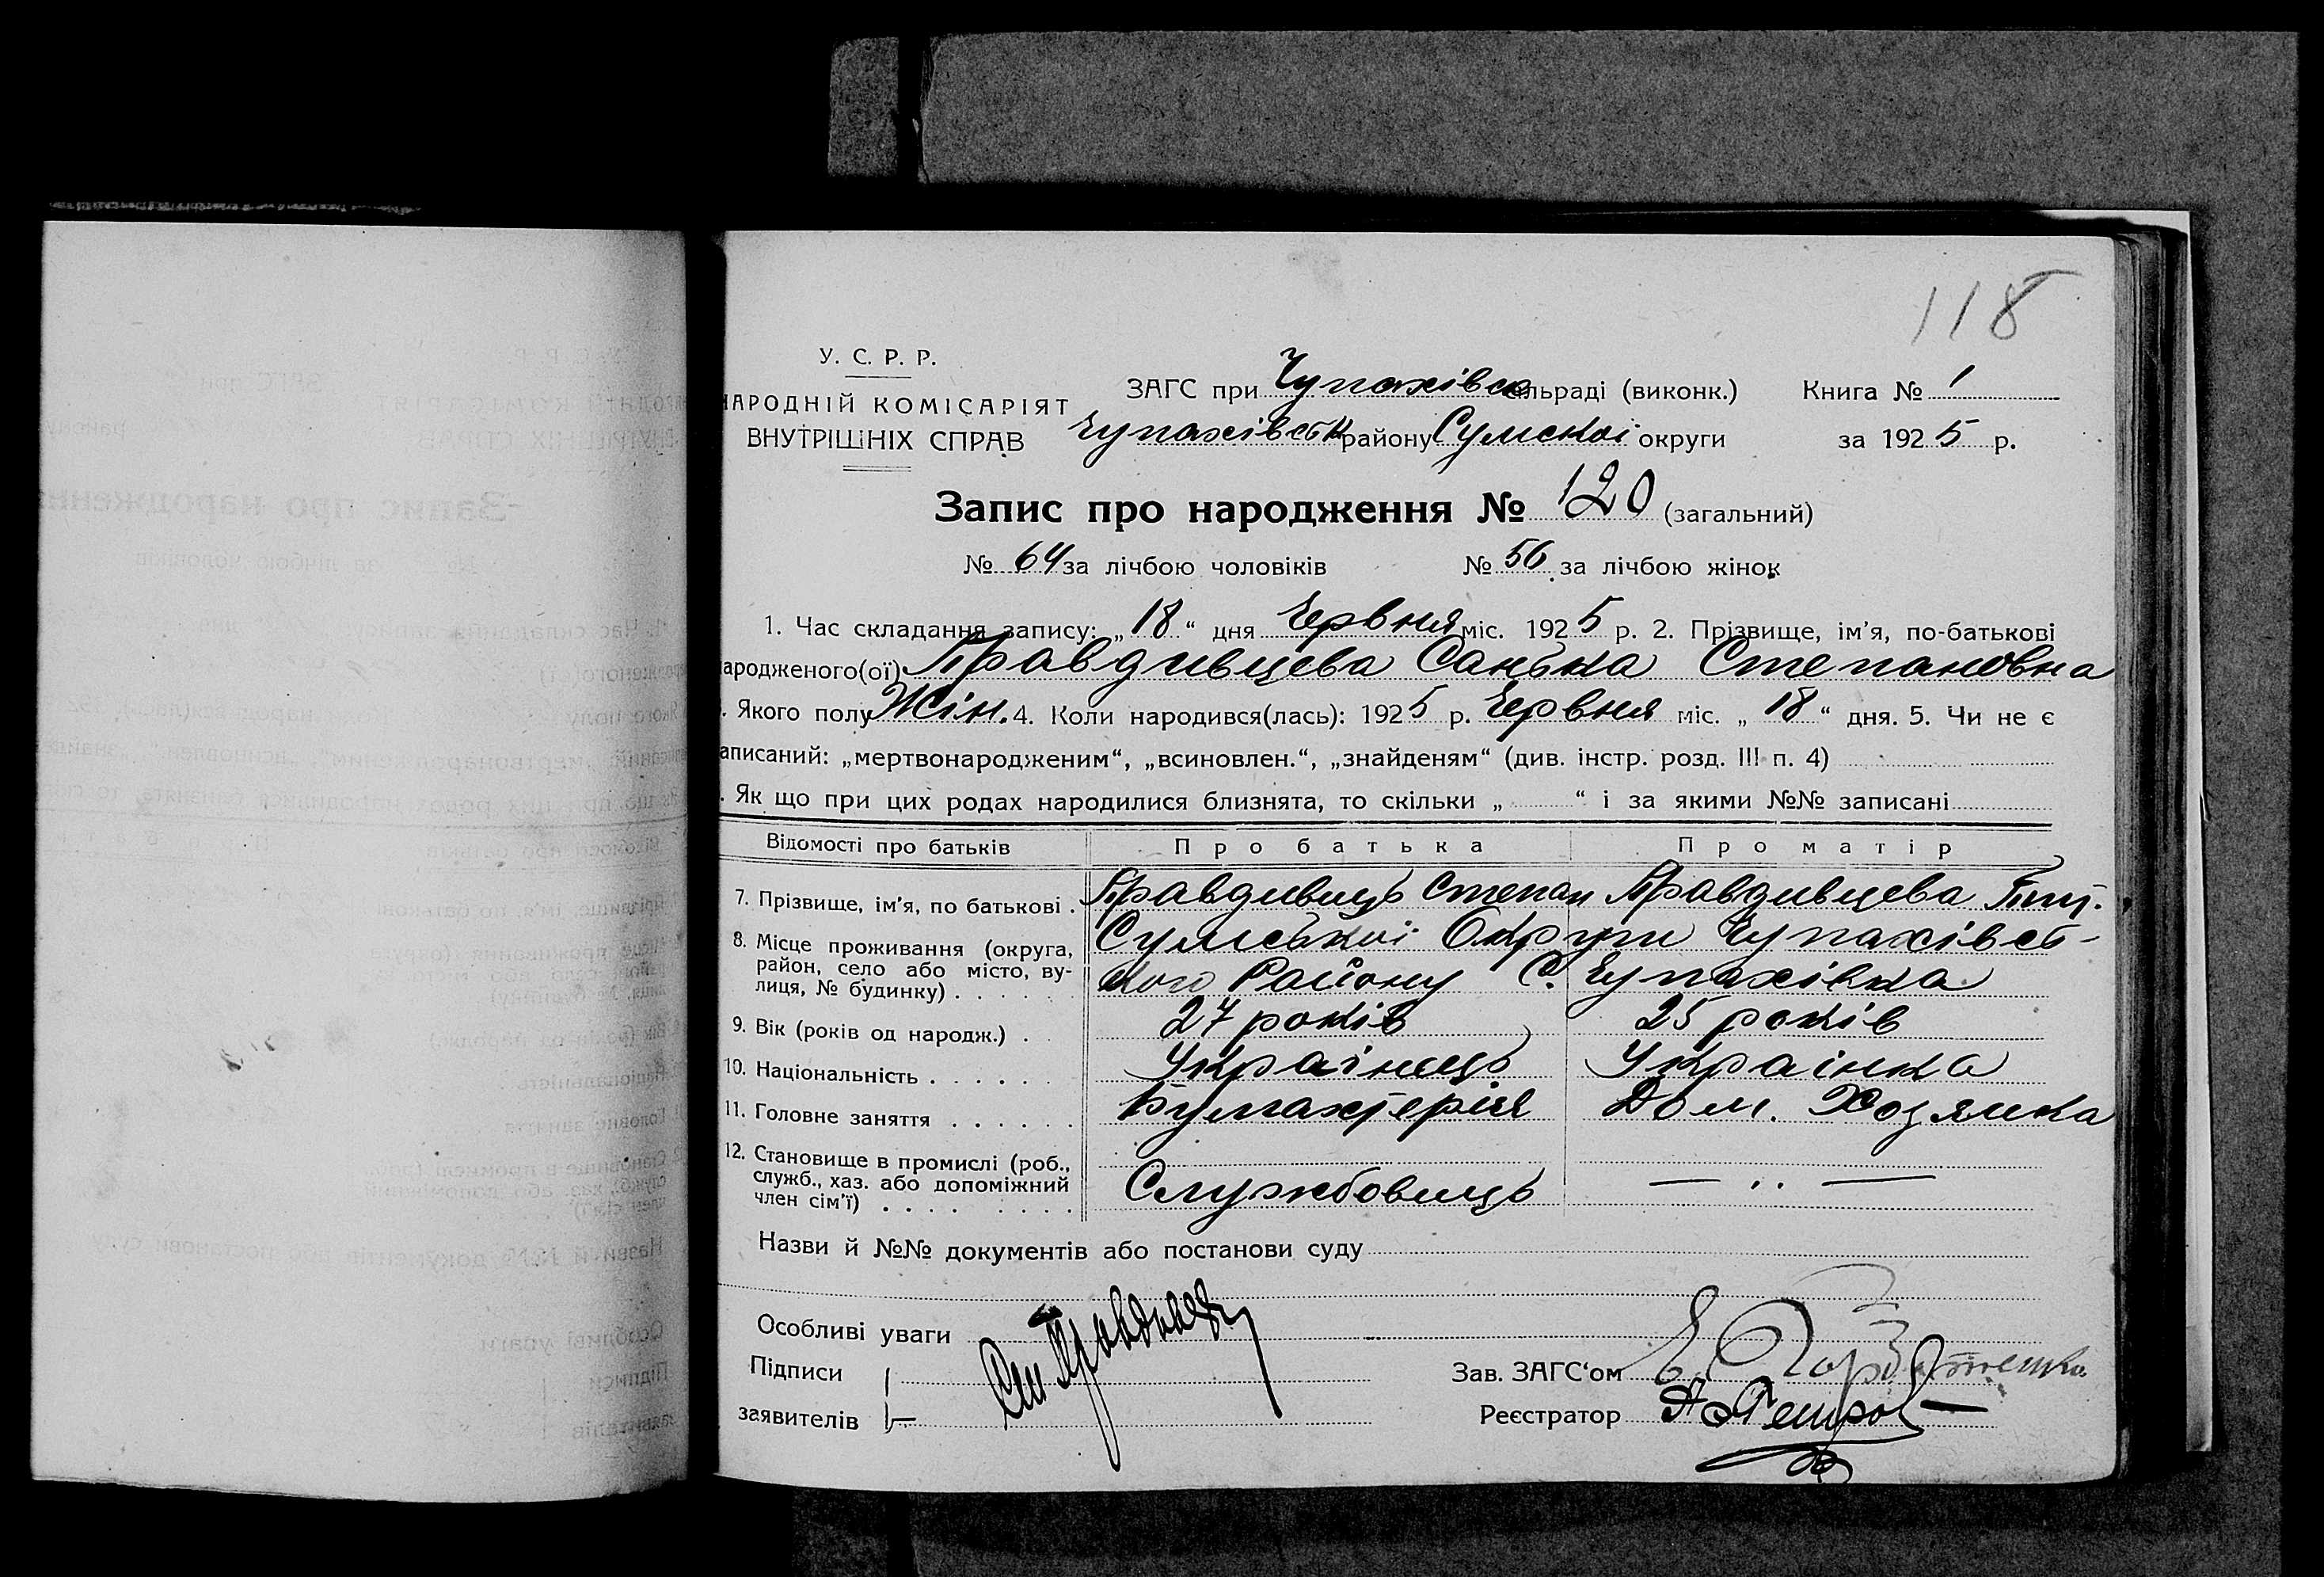 118
У. С. Р. Р.
НАРОДНІЙ КОМІСАРІЯТ
ВНУТРІШНІХ СПРАВ
ЗАГС при Чупахівск сільраді (виконк.) Книга № 1
Чупахівськ району Сумскоі округи за 1925 р.
Запис про народження № 120 (загальний)
№ 64 за лічбою чоловіків № 56 за лічбою жінок
1. Час складання запису: „18“ дня Червня міс. 1925 р. 2. Прізвище, ім’я, по-батькові
ародженого(ої) Правдивцева Санька Степановна
. Якого полу Жін. 4. Коли народився(лась): 1925 р. Червня міс. „18“ дня. 5. Чи не є
аписаний: „мертвонародженим“, „всиновлен.“, „знайденям“ (див. інстр. розд. III п. 4)
. Як що при цих родах народилися близнята, то скільки „ “ і за якими №№ записані
Відомості про батьків Про батька Про матір
7. Прізвище, ім’я, по батькові . Правдивиць Степан Правдивцева
8. Місце проживання (округа, район, село або місто, вулиця, № будинку) . . . . . Сумськоі Округи Чупахівсь-
кого Району С. Чупахівка
9. Вік (років од народж.) . 27 років 25 років
10. Національність . . . . . . Украінець Украінка
11. Головне заняття . . . . . . Бугахтерія Дом. Хозяйка
12. Становище в промислі (роб., служб., хаз. або допоміжний член сім’ї) . . . . . . . . Службовиць — ·· —
Назви й №№ документів або постанови суду
Особливі уваги
Підписи
заявителів
Зав. ЗАГС‘ом
Реєстратор